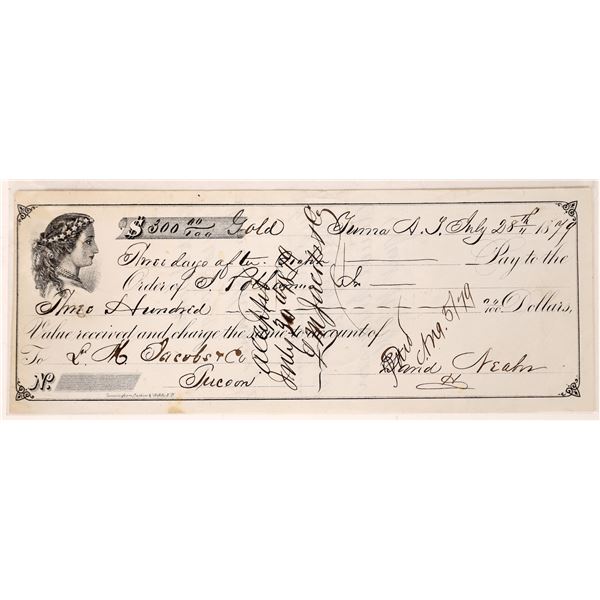 $300 00/100 Gold Yuma A.T. July 28th 1879
Three days after Pay to the
Order of
Three Hundred 00/100 Dollars,
Value received and charge the same to account of
To L. M. Jacobs & Co David Neahr
No. Tucson
Accepted
July 30th 1879
L M Jacobs & Co
Paid
Aug. 5/79